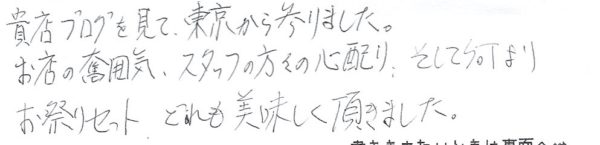 貴店ブログを見て、東京から参りました。
お店の奮囲気、スタッフの方々の心配り、そして何より
お祭りセット どれも美味しく頂きました。